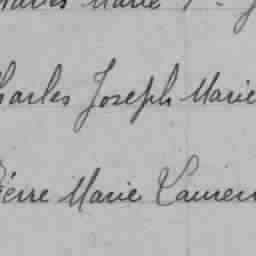 Marie
Charles Joseph Marie
Pierre Marie Lauren